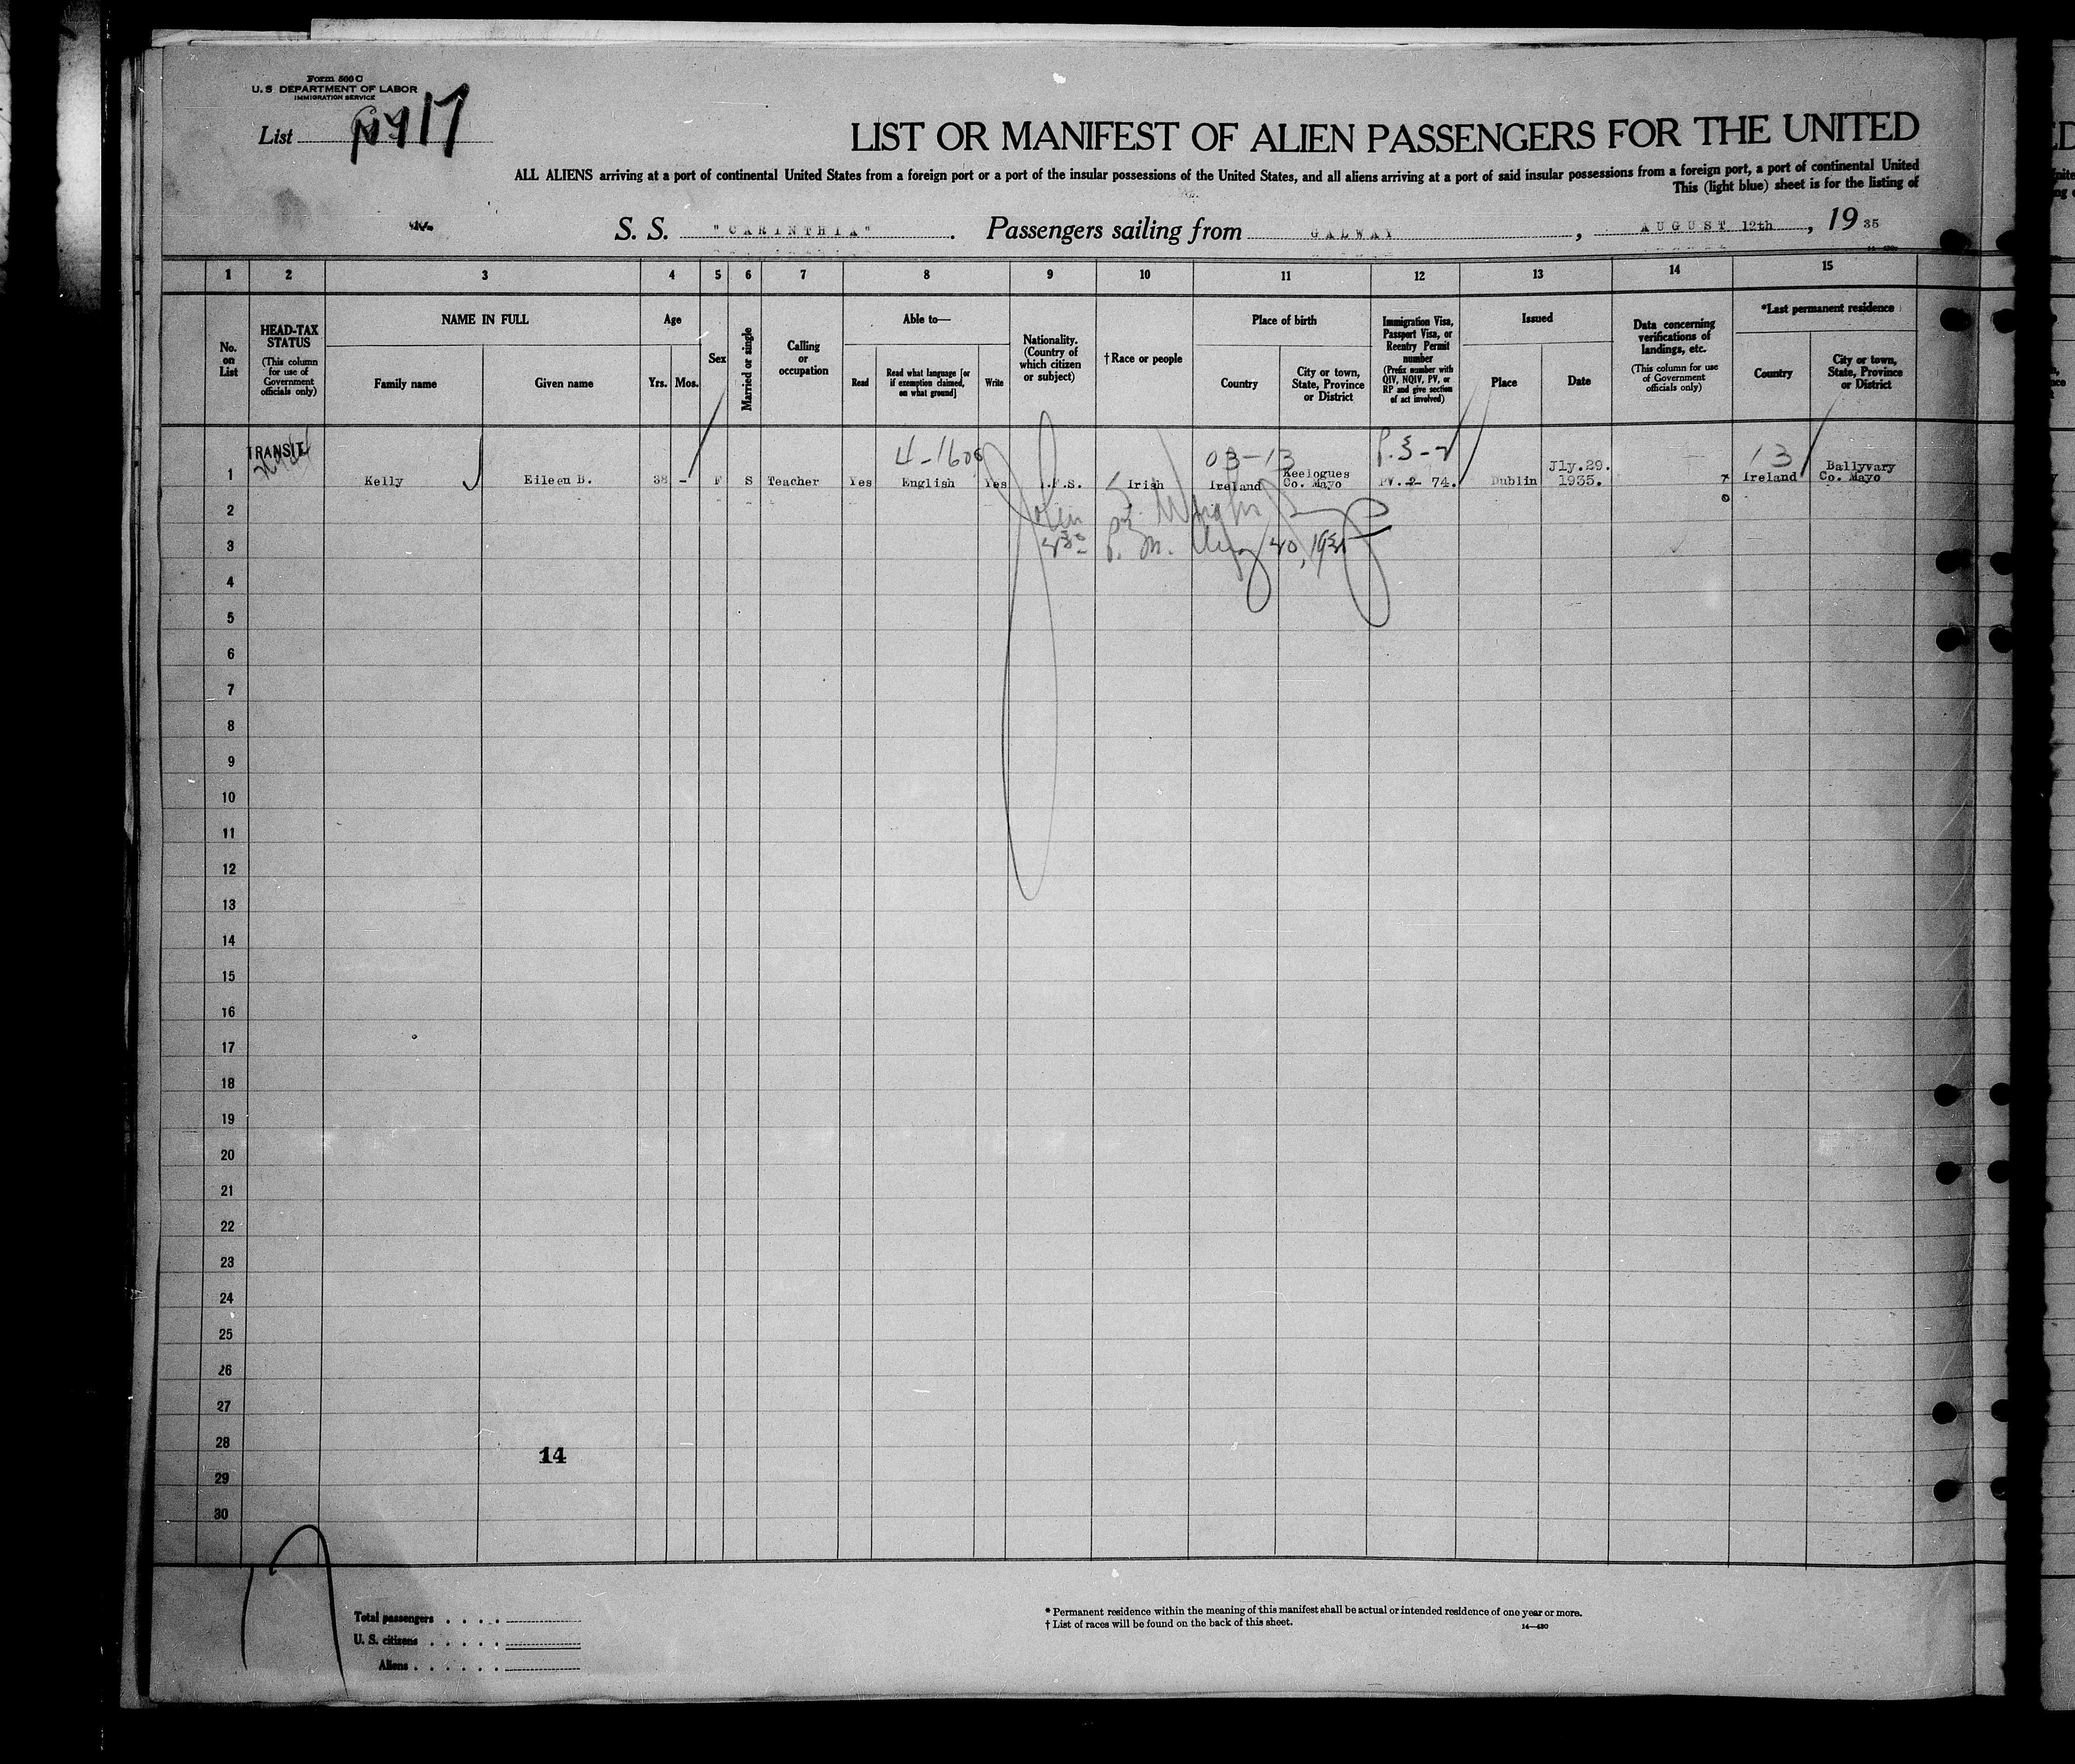 Form 500 C
U. S DEPARTMENT OF LABOR
IMMIGRATION SERVICE
List 17
LIST OR MANIFEST OF ALIEN PASSENGERS FOR THE UNITED
ALL ALIENS arriving at a port of continental United States from a foreign port or a port of the insular possessions of the United States, and all aliens arriving at a port of said insular possessions from a foreign port, a port of continental United
This (light blue) sheet is for the listing of
S. S. "CARINTHIA". Passengers sailing from GALWAY, AUGUST 12th, 1935
1 2 3 4 5 6 7 8 9 10 11 12 13 14 15
No. on List
HEAD-TAX STATUS
(This column for use of Government officials only)
NAME IN FULL
Family name
Given name
Age
Yrs.
Mos.
Sex
Married or single
Calling or occupation
Able to—
Read
Read what language [or if exemption claimed, on what ground]
Write
Nationality. (Country of which citizen or subject)
†Race or people
Place of birth
Country
City or town, State, Province or District
Immigration Visa, Passport Visa, or Reentry Permit number
(Prefix number with QIV, NQIV, PV, or RP and give section of act involved)
Issued
Place
Date
Data concerning verifications of landings, etc.
(This column for use of Government officials only)
*Last permanent residence
Country
City or town, State, Province or District
TRANSIT
4-1608
03-13
13
1 Kelly Eileen B. 38 - F S Teacher Yes English Yes I.F.S. Irish Ireland Keelogues Co. Mayo PV.-2- 74. Dublin Jly.29. 1935. Ireland Ballyvary Co. Mayo
2
3
4
5
6
7
8
9
10
11
12
13
14
15
16
17
18
19
20
21
22
23
24
25
26
27
28
14
29
30
Total passengers . . . .
U. S. citizens . . . . .
Aliens . . . . . .
* Permanent residence within the meaning of this manifest shall be actual or intended residence of one year or more.
† List of races will be found on the back of this sheet.
14—430